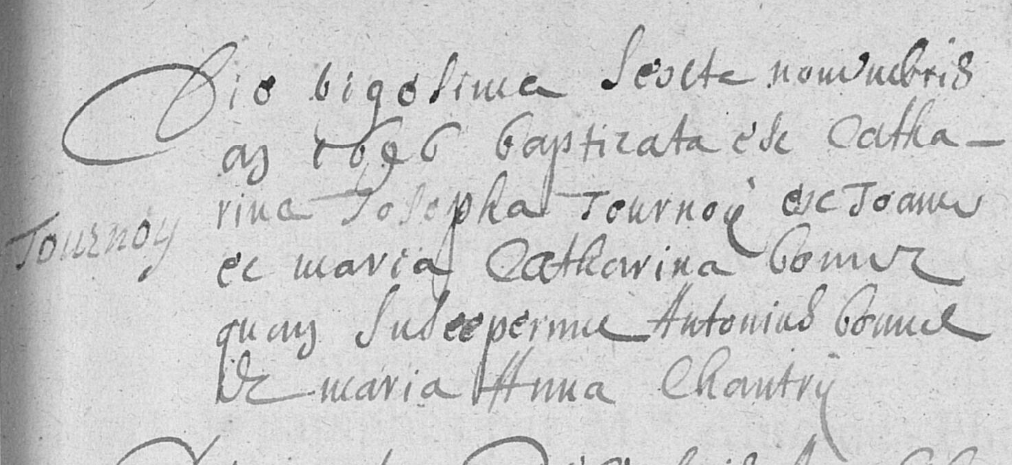 Die vigesima sexta novembris
an 1696 baptizata est Catha-
rina Josepha Tournoy ex Joanne
Tournoy
et maria Catharina bonnet
quam susceperunt Antonius bonnet
et maria Anna Chantry